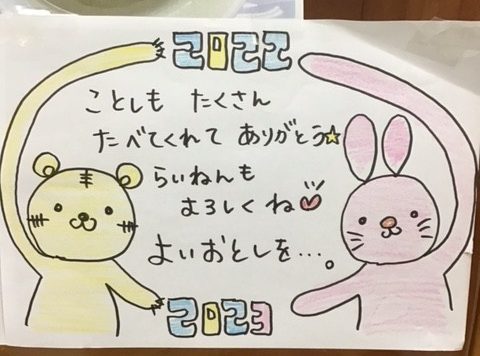 2022
ことしも たくさん
たべてくれて ありがとう☆
らいねんも
よろしくね
よいおとしを...。
2023